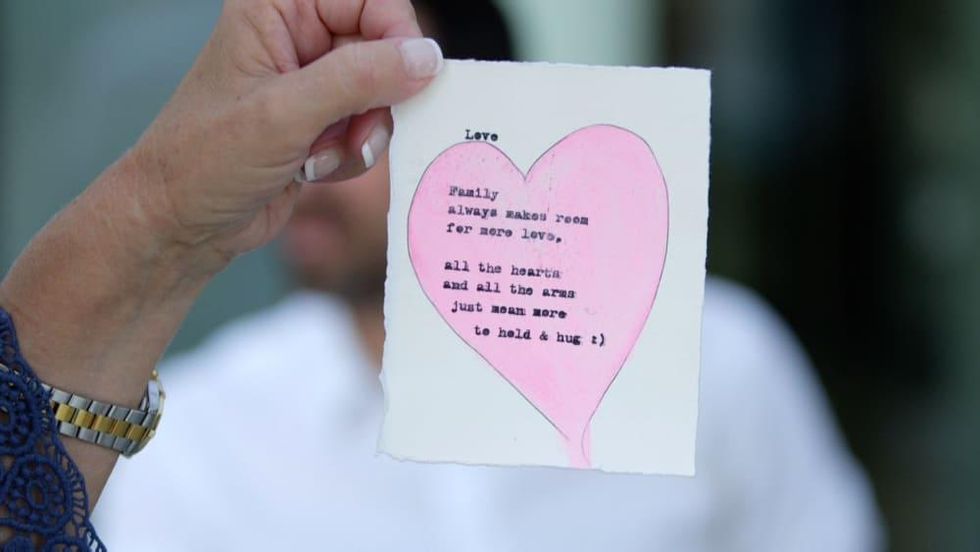 Love
Family
always makes room
for more love,
all the hearts
and all the arms
just mean more
to hold & hug :)